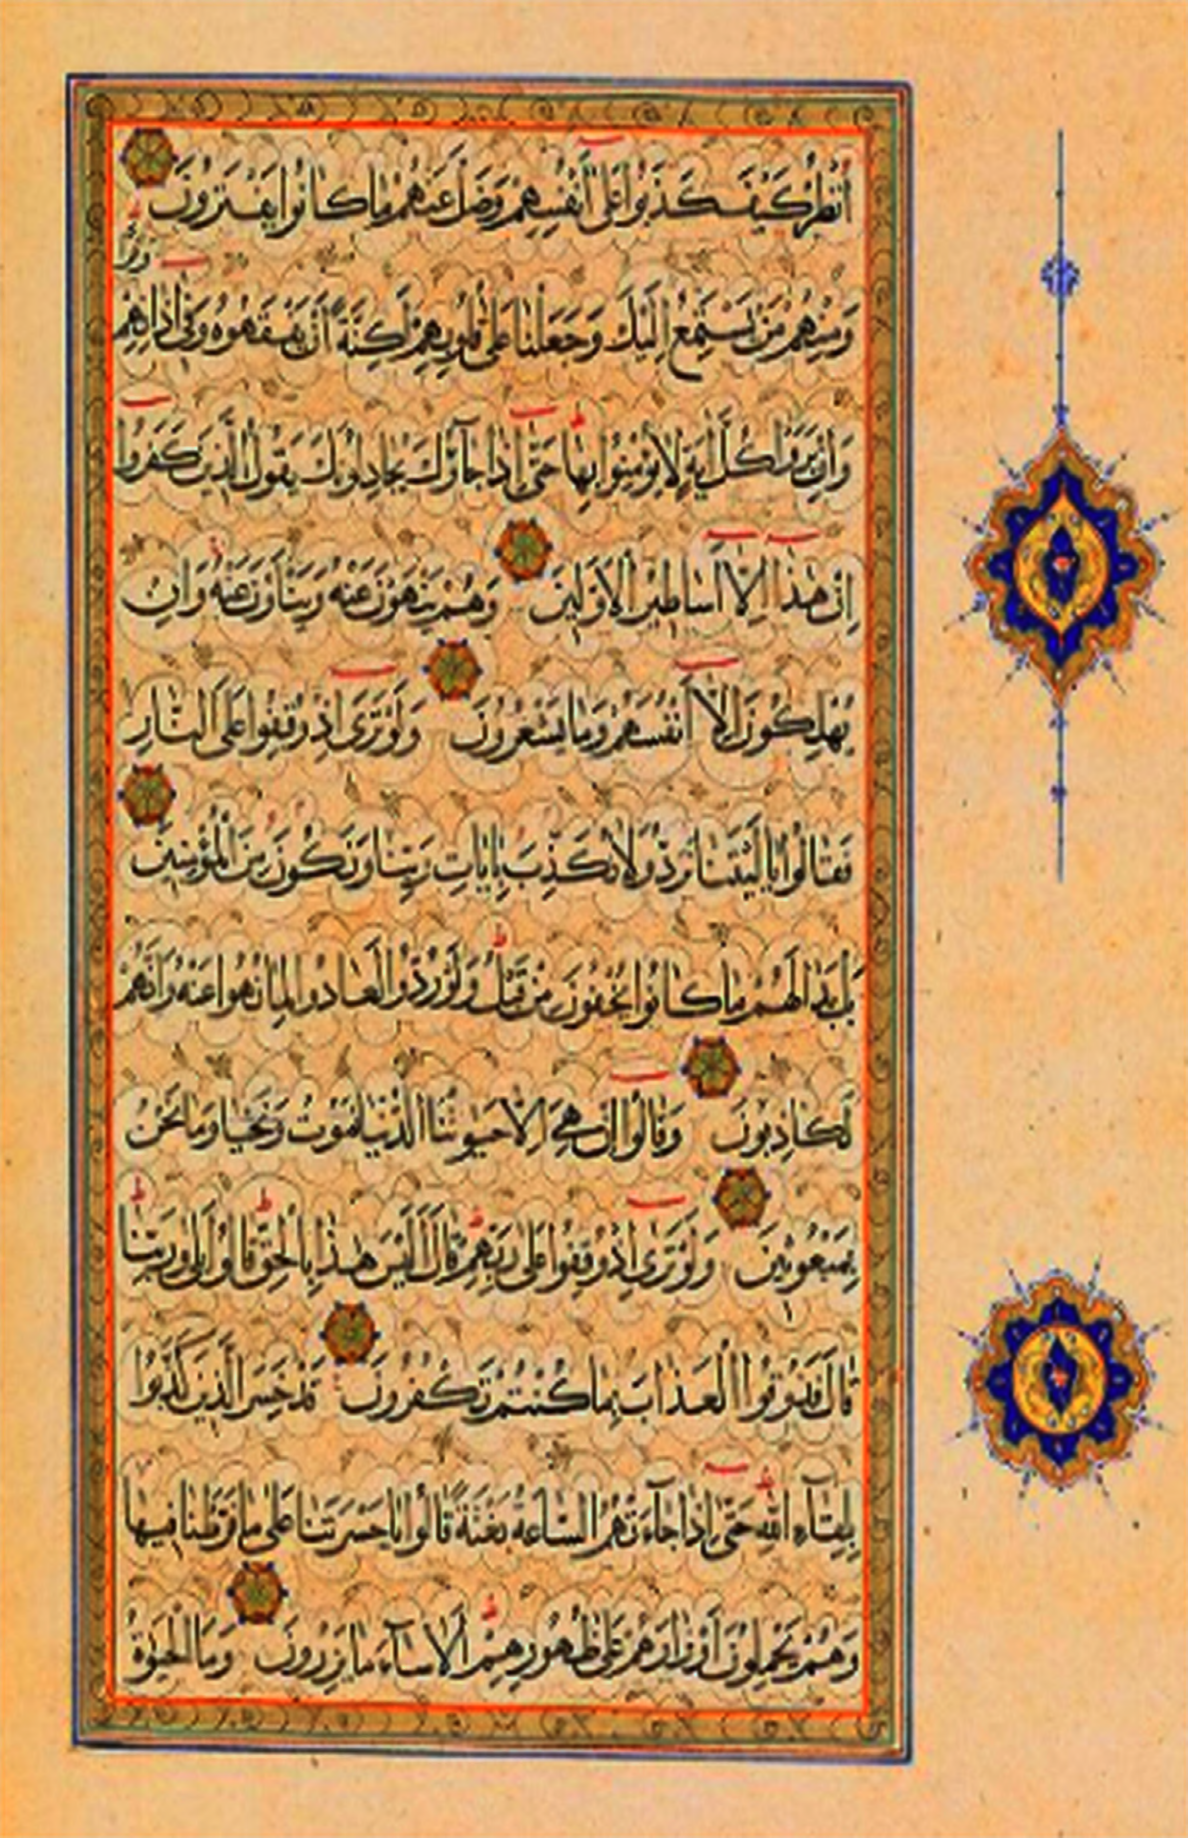 أُنْظُرْ كَيْفَ كَذَبُوا عَلَى أَنْفُسِهِمْ وَضَلَّ عَنْهُمْ مَا كَانُوا يَفْتَرُونَ
وَمِنْهُمْ مَنْ يَسْتَمِعُ إِلَيْكَ وَجَعَلْنَا عَلَى قُلُوبِهِمْ أَكِنَّةً أَنْ يَفْقَهُوهُ وَفِي اذَانِهِمْ وَقْرًا
وَإِنْ يَرَوْا كُلَّ ايَةٍ لَا يُؤْمِنُوا بِهَا حَتَّى إِذَا جَاؤُكَ يُجَادِلُونَكَ يَقُولُ الَّذِينَ كَفَرُوا
إِنْ هَذَا إِلَّا أَسَاطِيرُ الْأَوَّلِينَ وَهُمْ يَنْهَوْنَ عَنْهُ وَيَنْأَوْنَ عَنْهُ وَإِنْ
يُهْلِكُونَ إِلَّا أَنْفُسَهُمْ وَمَا يَشْعُرُونَ وَلَوْ تَرَى إِذْ وُقِفُوا عَلَى النَّارِ
فَقَالُوا يَا لَيْتَنَا نُرَدُّ وَلَا نُكَذِّبَ بِايَاتِ رَبِّنَا وَنَكُونَ مِنَ الْمُؤْمِنِينَ
بَلْ بَدَا لَهُمْ مَا كَانُوا يُخْفُونَ مِنْ قَبْلُ وَلَوْ رُدُّوا لَعَادُوا لِمَا نُهُوا عَنْهُ وَإِنَّهُمْ
لَكَاذِبُونَ وَقَالُوا إِنْ هِيَ إِلَّا حَيٰوتُنَا الدُّنْيَا نَمُوتُ وَنَحْيَا وَمَا نَحْنُ
بِمَبْعُوثِينَ وَلَوْ تَرَى إِذْ وُقِفُوا عَلَى رَبِّهِمْ قَالَ أَلَيْسَ هَذَا بِالْحَقِّ قَالُوا بَلَى وَرَبِّنَا
قَالَ فَذُوقُوا الْعَذَابَ بِمَا كُنْتُمْ تَكْفُرُونَ قَدْ خَسِرَ الَّذِينَ كَذَّبُوا
بِلِقَاءِ اللَّهِ حَتَّى إِذَا جَاءَتْهُمُ السَّاعَةُ بَغْتَةً قَالُوا يَا حَسْرَتَنَا عَلَى مَا فَرَّطْنَا فِيهَا
وَهُمْ يَحْمِلُونَ أَوْزَارَهُمْ عَلَى ظُهُورِهِمْ أَلَا سَاءَ مَا يَزِرُونَ وَمَا الْحَيٰوةُ